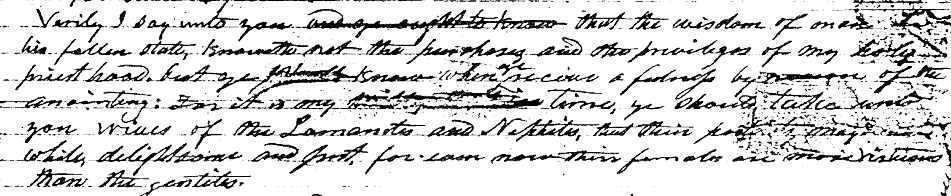 Verily I say unto you and ye ought to know that the wisdom of man in
his fallen state, knoweth not the purposes and the privileges of my holy
priesthood. but ye shall know when ye receive a fulness by reason of the
anointing: For it is my will, that in time, ye should take unto
you wives of the Lamanites and Nephites, that their posterity may become
white, delightsome and Just, for even now their females are more virtuous
than the gentiles.